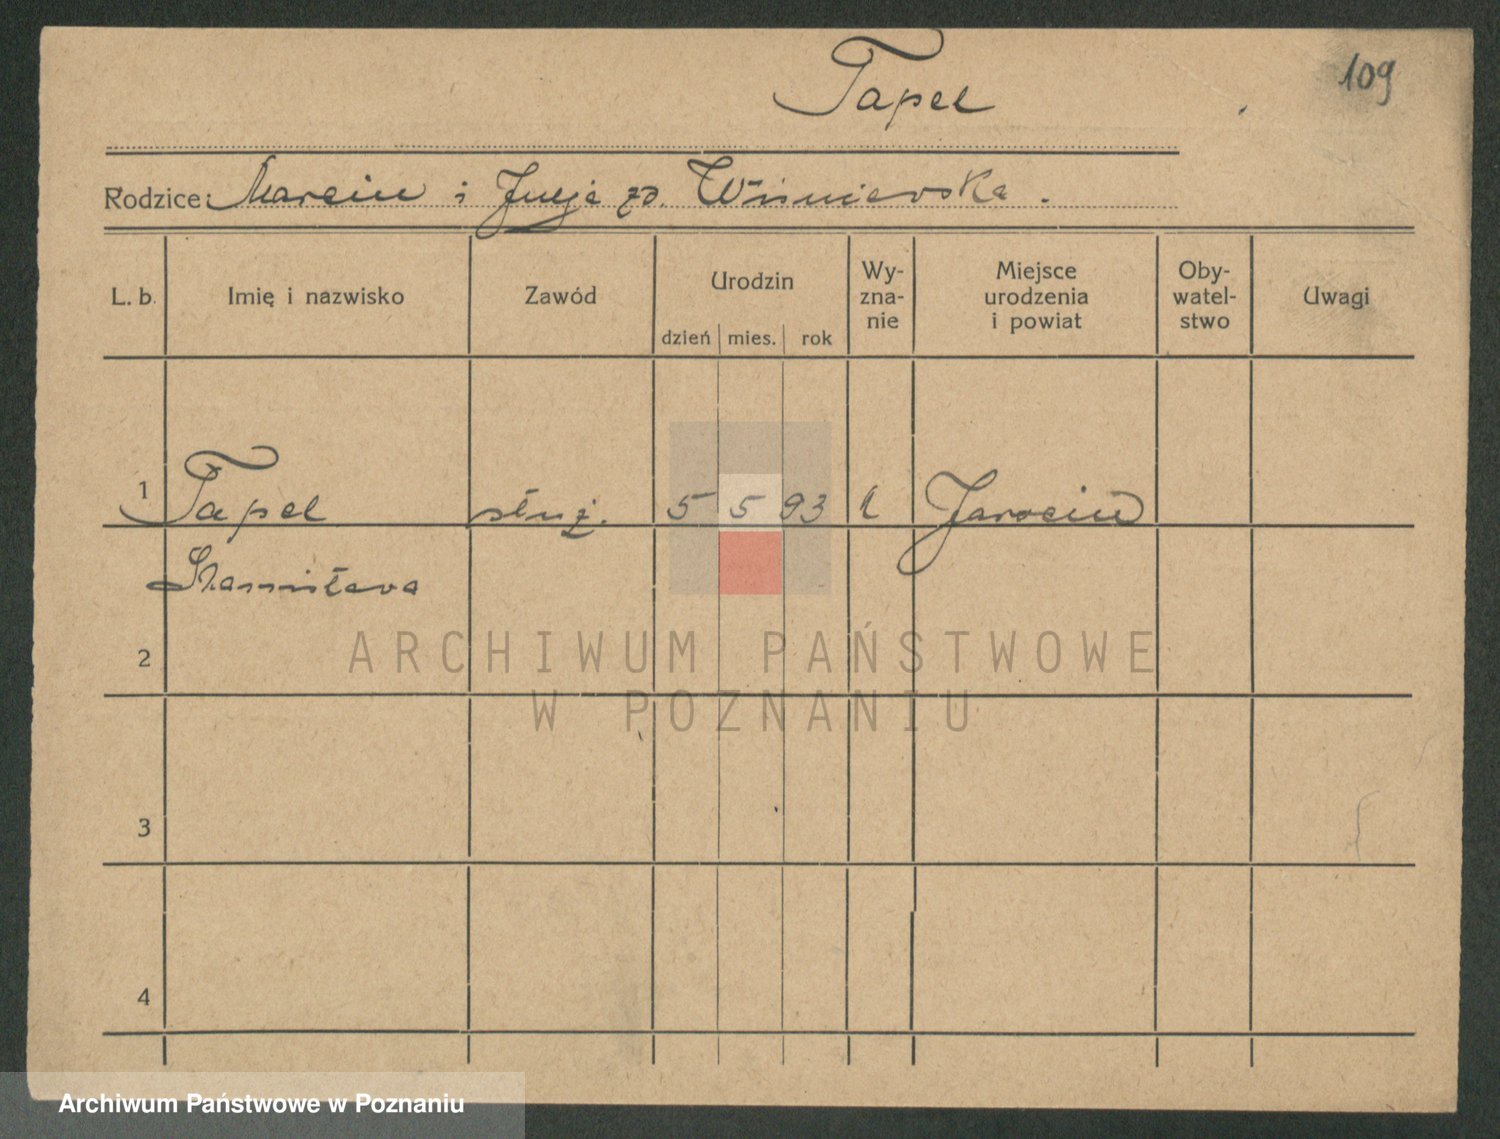 Tapel
109
Rodzice: Marcin i Julja zd. Wiśniewska.
L. b. Imię i nazwisko Zawód Urodzin Wy-zna-nie Miejsce urodzenia i powiat Oby-watel-stwo Uwagi
dzień mies. rok
1 Tapel służ. 5 5 93 k Jarocin
Stanisława
2
ARCHIWUM PAŃSTWOWE
W POZNANIU
3
4
Archiwum Państwowe w Poznaniu